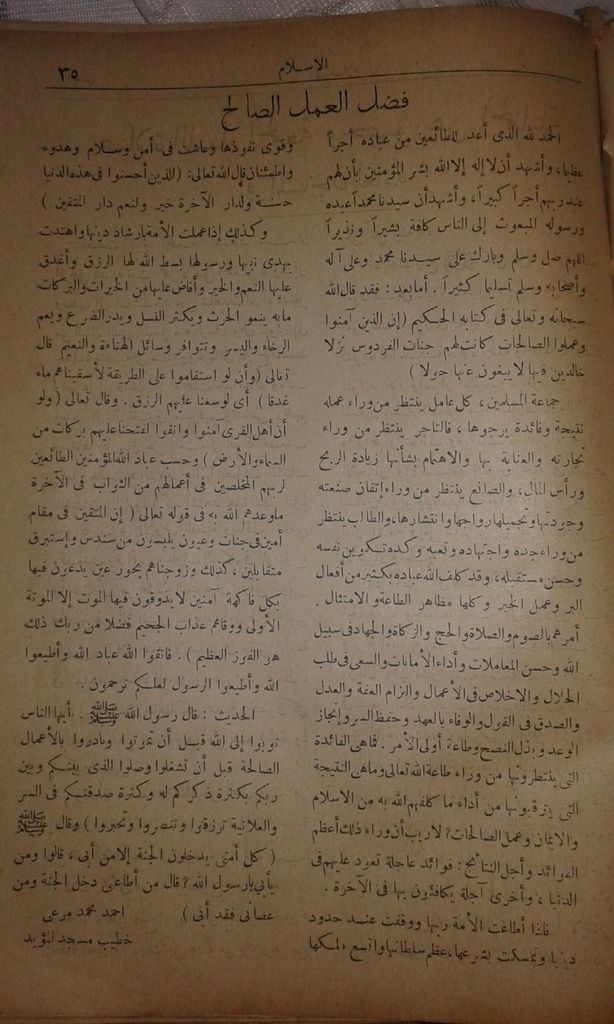 الاسلام
٣٥
فضل العمل الصالح
الحمد لله الذى أعد للطائعين من عباده أجراً
عظيما، وأشهد أن لا إله إلا الله بشر المؤمنين بأن لهم
عند ربهم أجراً كبيراً، وأشهد أن سيدنا محمداً عبده
ورسوله المبعوث إلى الناس كافة بشيراً ونذيراً
اللهم صل وسلم وبارك على سيدنا محمد وعلى آله
وأصحابه وسلم تسليما كثيراً . أما بعد : فقد قال الله
سبحانه وتعالى فى كتابه الحكيم (إن الذين آمنوا
وعملوا الصالحات كانت لهم جنات الفردوس نزلا
خالدين فيها لا يبغون عنها حولا )
جماعة المسلمين ، كل عامل ينتظر من وراء عمله
نتيجة وفائدة يرجوها ، فالتاجر ينتظر من وراء
تجارته والعناية بها والاهتمام بشأنها زيادة الربح
ورأس المال، والصانع ينتظر من وراء إتقان صنعته
وجودتها وتجميلها رواجها وانتشارها، والطالب ينتظر
من وراء جده واجتهاده وتعبه وكده تكوين نفسه
وحسن مستقبله، وقد كلف الله عباده بكثير من أفعال
البر وعمل الخير وكلها مظاهر الطاعة والامتثال .
أمرهم بالصوم والصلاة والحج والزكاة والجهاد فى سبيل
الله وحسن المعاملات وأداء الأمانات والسعى فى طلب
الحلال والاخلاص فى الأعمال والتزام العفة والعدل
والصدق فى القول والوفاء بالعهد وحفظ السر وإنجاز
الوعد وبذل النصح وطاعة أولى الأمر . فما هى الفائدة
التى ينتظرونها من وراء طاعة الله تعالى وما هى النتيجة
التى يترقبونها من أداء ما كلفهم الله به من الاسلام
والايمان وعمل الصالحات؟ لا ريب أن وراء ذلك أعظم
الفوائد وأجل النتائج : فوائد عاجلة تعود عليهم فى
الدنيا ، وأخرى آجلة يكافئون بها فى الآخرة .
فاذا أطاعت الأمة ربها ووقفت عند حدود
دينها وتمسكت بشرعها، عظم سلطانها واتسع ملكها
وقوى نفوذها وعاشت فى أمن وسلام وهدوء
واطمئنان قال الله تعالى: (للذين أحسنوا فى هذه الدنيا
حسنة ولدار الآخرة خير ولنعم دار المتقين )
وكذلك إذا عملت الأمة بارشاد دينها واهتدت
بهدى نبيها ورسولها بسط الله لها الرزق وأغدق
عليها النعم والخير وأفاض عليها من الخيرات والبركات
مابه ينمو الحرث ويكثر النسل ويدر الضرع ويعم
الرخاء واليسر وتتوافر وسائل الهناءة والنعيم قال
تعالى (وأن لو استقاموا على الطريقة لأسقيناهم ماء
غدقا ) أى لوسعنا عليهم الرزق . وقال تعالى (ولو
أن أهل القرى آمنوا واتقوا لفتحنا عليهم بركات من
السماء والأرض ) وحسب عباد الله المؤمنين الطائعين
لربهم المخلصين فى أعمالهم من الثواب فى الآخرة
ما وعدهم الله به فى قوله تعالى ( إن المتقين فى مقام
أمين فى جنات وعيون يلبسون من سندس وإستبرق
متقابلين ، كذلك وزوجناهم بحور عين يدعون فيها
بكل فاكهة آمنين لا يذوقون فيها الموت إلا الموتة
الأولى ووقاهم عذاب الجحيم فضلا من ربك ذلك
هو الفوز العظيم ) . فاتقوا الله عباد الله وأطيعوا
الله وأطيعوا الرسول لعلكم ترحمون .
الحديث : قال رسول الله ﷺ . أيها الناس
توبوا إلى الله قبل أن تموتوا وبادروا بالأعمال
الصالحة قبل أن تشغلوا وصلوا الذى بينكم وبين
ربكم بكثرة ذكركم له وكثرة صدقتكم فى السر
والعلانية ترزقوا وتنصروا وتجبروا ) وقال ﷺ
( كل أمتى يدخلون الجنة إلا من أبى ، قالوا ومن
يأبى يارسول الله ? قال من أطاعنى دخل الجنة ومن
عصانى فقد أبى )
احمد محمد مرعى
خطيب مسجد المؤيد